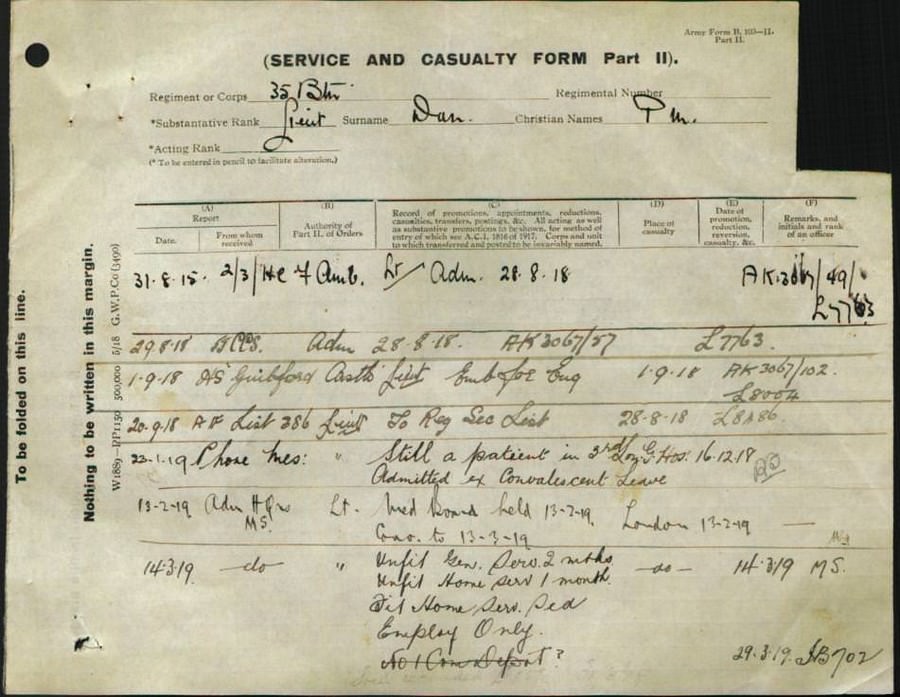 Army Form B. 103—II.
Part II.
(SERVICE AND CASUALTY FORM Part II).
Regiment or Corps 35 Btn. Regimental Number
*Substantative Rank Lieut Surname Christian Names
*Acting Rank
(* To be entered in pencil to facilitate alteration.)
(A) Report
Date. From whom received
(B)
Authority of Part II. of Orders
(C)
Record of promotions, appointments, reductions, casualties, transfers, postings, &c. All acting as well as substantive promotions to be shown, for method of entry of which see A.C.I. 1816 of 1917. Corps and unit to which transferred and posted to be invariably named.
(D)
Place of casualty
(E)
Date of promotion, reduction, reversion, casualty, &c.
(F)
Remarks, and initials and rank of an officer
31.8.18. 2/3/HC F Amb. Lt Adm. 28.8.18 AK3067/49/
L7763
29.8.18 Adm 28.8.18. AK3067/57 L7763.
1.9.18 HS Guildford Castle Lieut Emb for Eng 1.9.18 AK3067/102.
L8004
20.9.18 AF List 386 Lieut To Reg Sec List 28-8-18 L8486
23.1.19 Phone Mes: " Still a patient in 3rd Lon. G. Hos. 16.12.18
Admitted ex Convalescent Leave
13-2-19 Adm HQrs
MS. Lt. Med Board held 13-2-19. London 13-2-19 —
to 13-3-19
14.3.19. —do— " Unfit Gen. Serv. 2 mths —do— 14.3.19 MS.
Unfit Home Serv 1 month.
Fit Home Serv. Sed
Employ Only.
No 1 Com Depot?
29.3.19. HB702
To be folded on this line.
Nothing to be written in this margin.
W1889—PP1150 500,000 5/18 G.W.P.Co(3490)